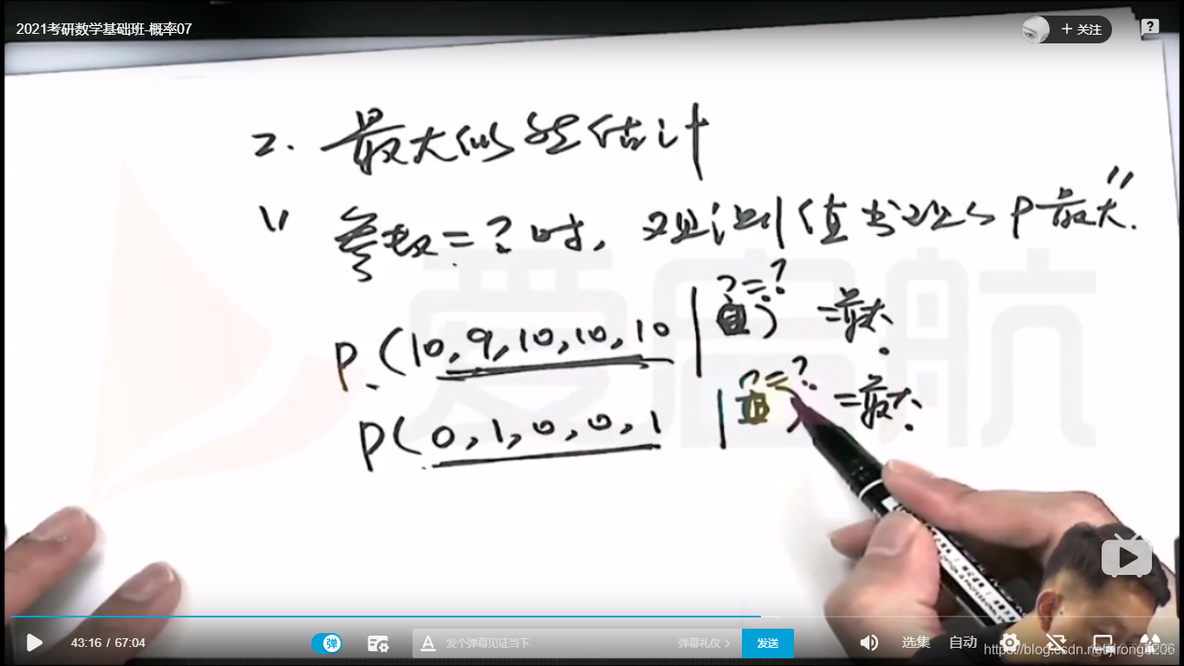 2021考研数学基础班-概率07
+ 关注
?
2. 最大似然估计
1) 参数=?时, 观测值出现的P最大".
P(10,9,10,10,10 | ?=?) =最大.
P(0,1,0,0,1 | ?=?) =最大.
爱启航
43:16 / 67:04
弹
A 发个弹幕见证当下
弹幕礼仪 >
发送
选集
自动